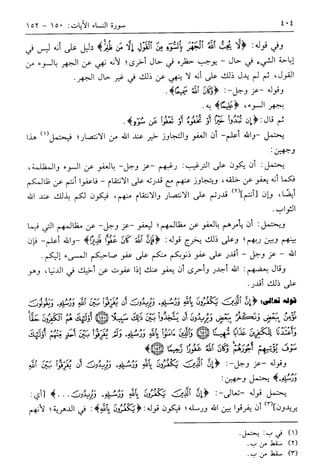 ٤٠٤
سورة النساء الآيات: ١٥٠ - ١٥٢
وفي قوله: ﴿لَّا يُحِبُّ ٱللَّهُ ٱلْجَهْرَ بِٱلسُّوٓءِ مِنَ ٱلْقَوْلِ إِلَّا مَن ظُلِمَ﴾ دليل على أنه ليس في
إباحة الشيء في حال - يوجب حظره في حال أخرى؛ لأنه نهي عن الجهر بالسوء من
القول، ثم لم يدل ذلك على أنه لا ينهى عن ذلك في غير حال الجهر.
وقوله -عز وجل-: ﴿وَكَانَ ٱللَّهُ سَمِيعًا﴾.
بجهر السوء، ﴿عَلِيمًا﴾ به.
ثم قال: ﴿إِن تُبْدُوا۟ خَيْرًا أَوْ تُخْفُوهُ أَوْ تَعْفُوا۟ عَن سُوٓءٍ﴾.
يحتمل -والله أعلم- أن العفو والتجاوز خير عند الله من الانتصار؛ فيحتمل(١) هذا
وجهين:
يحتمل: أن يكون على الترغيب: رغبهم -عز وجل- بالعفو عن السوء والمظلمة،
فكما أنه يعفو عن خلقه، ويتجاوز عنهم مع قدرته على الانتقام - فاعفوا أنتم عن ظالمكم
أيضًا، وإن [أنتم](٢) قدرتم على الانتصار والانتقام منهم، فيكون لكم بذلك عند الله
الثواب.
ويحتمل: أن يأمرهم بالعفو عن مظالمهم؛ ليعفو -عز وجل- عن مظالمهم التي فيما
بينهم وبين ربهم؛ وعلى ذلك يخرج قوله: ﴿فَإِنَّ ٱللَّهَ كَانَ عَفُوًّا قَدِيرًا﴾ -والله أعلم- فإن
الله - عز وجل - أقدر على عفو ذنوبكم منكم على عفو صاحبكم المسيء إليكم.
وقال بعضهم: الله أجدر وأحرى أن يعفو عنك إذا عفوت عن أخيك في الدنيا، وهو
على ذلك أقدر.
قوله تعالى: ﴿إِنَّ ٱلَّذِينَ يَكْفُرُونَ بِٱللَّهِ وَرُسُلِهِۦ وَيُرِيدُونَ أَن يُفَرِّقُوا۟ بَيْنَ ٱللَّهِ وَرُسُلِهِۦ وَيَقُولُونَ
نُؤْمِنُ بِبَعْضٍ وَنَكْفُرُ بِبَعْضٍ وَيُرِيدُونَ أَن يَتَّخِذُوا۟ بَيْنَ ذَٰلِكَ سَبِيلًا ﴿١٥٠﴾ أُو۟لَٰٓئِكَ هُمُ ٱلْكَٰفِرُونَ حَقًّا
وَأَعْتَدْنَا لِلْكَٰفِرِينَ عَذَابًا مُّهِينًا ﴿١٥١﴾ وَٱلَّذِينَ ءَامَنُوا۟ بِٱللَّهِ وَرُسُلِهِۦ وَلَمْ يُفَرِّقُوا۟ بَيْنَ أَحَدٍ مِّنْهُمْ أُو۟لَٰٓئِكَ
سَوْفَ يُؤْتِيهِمْ أُجُورَهُمْ وَكَانَ ٱللَّهُ غَفُورًا رَّحِيمًا ﴿١٥٢﴾﴾
وقوله -عز وجل-: ﴿إِنَّ ٱلَّذِينَ يَكْفُرُونَ بِٱللَّهِ وَرُسُلِهِۦ وَيُرِيدُونَ أَن يُفَرِّقُوا۟ بَيْنَ ٱللَّهِ
وَرُسُلِهِۦ﴾ يحتمل وجهين:
يحتمل قوله -تعالى-: ﴿إِنَّ ٱلَّذِينَ يَكْفُرُونَ بِٱللَّهِ وَرُسُلِهِۦ وَيُرِيدُونَ ...﴾ [أي:
يريدون](٣) أن يفرقوا بين الله ورسله؛ فيكون قوله: ﴿يَكْفُرُونَ بِٱللَّهِ﴾: في الدهرية؛ لأنهم
(١) في ب: يحتمل.
(٢) سقط من ب.
(٣) سقط من ب.